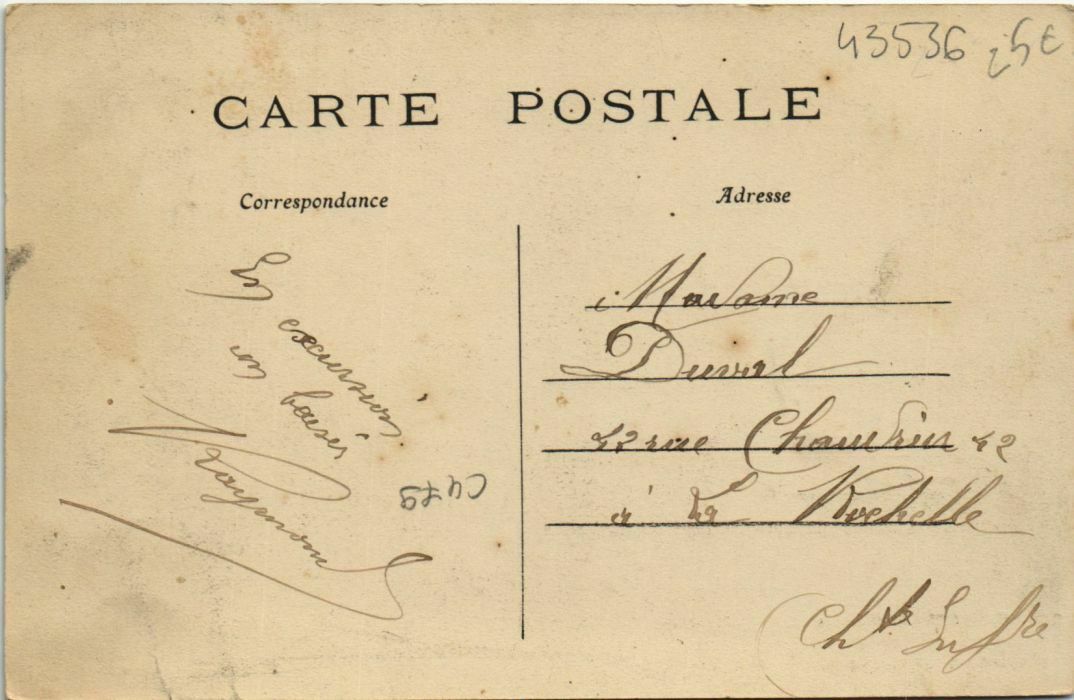 43536 25€
CARTE POSTALE
Correspondance
En excursion
un baiser
Raymond
CU79
Adresse
Madame
Duval
42 rue Chaudrier 42
à La Rochelle
Chte Infre